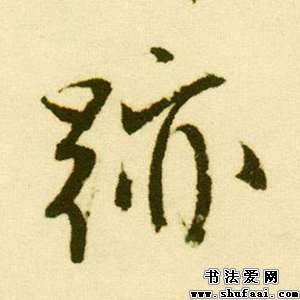 跡
书法爱网
www.shufaai.com